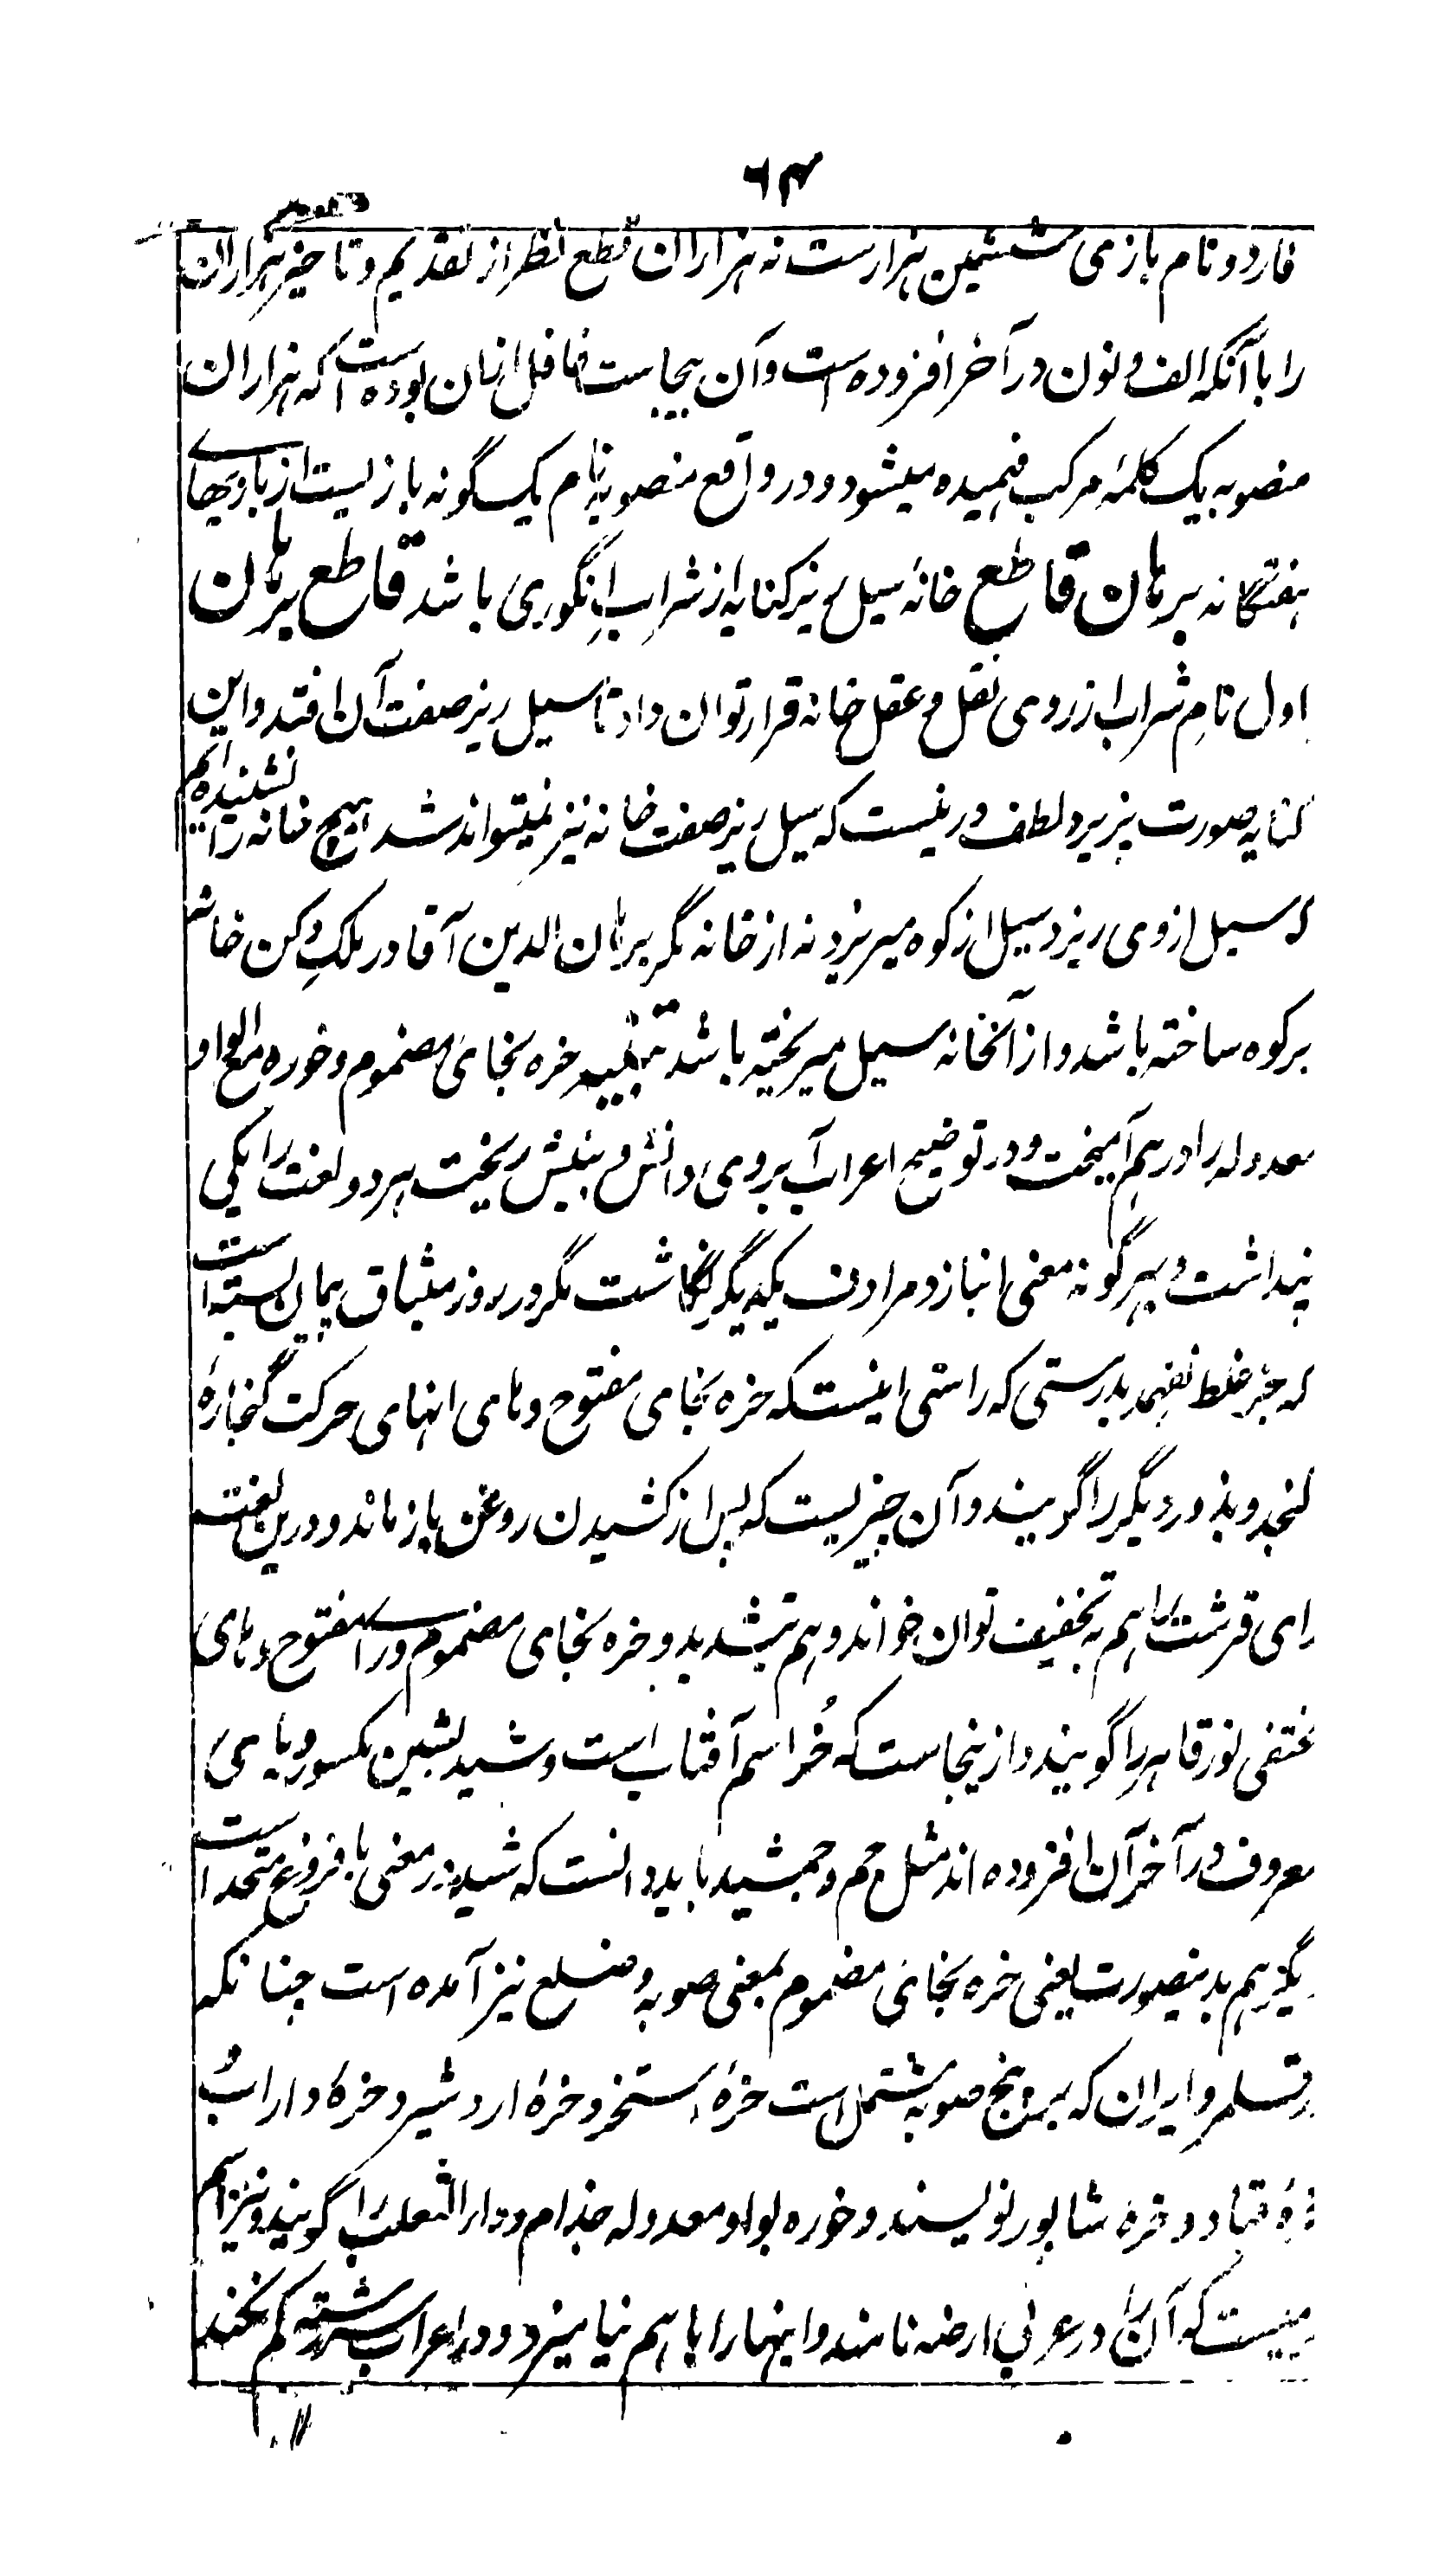 ۶۴
فارد و نام بازی ششمین هزارست نه هزاران قطع نظر از تقدیم و تاخیر هزاران
را با آنکه الف و نون در آخر افزوده است و آن بیجاست فافل ازان بوده است که هزاران
منصوبه یک کلمهٔ مرکب فهمیده میشود و در واقع منصوبه نام یک گونه بازیست از بازیهای
هفتگانه برهان قاطع خانه سیل ریز کنایه از شراب انگوری باشد قاطع برهان
اول نام شراب از روی نقل و عقل خانه قرار توان داد تا سیل ریز صفت آن افتد و این
کنایه صورت پزیرد لطف درینست که سیل ریز صفت خانه نیز نمیتواند شد هیچ خانه را نشنیده ایم
که سیل از وی ریزد سیل از کوه میریزد نه از خانه مگر برهان الدین آقا در ملک دکن خانه
بر کوه ساخته باشد و از آنخانه سیل میریخته باشد تنبیه خره بخای مضموم و خوره مع الواو
معدوله را در هم آمیخت و در توضیح اعراب آبروی دانش و بینش ریخت هر دو لغت را یکی
پنداشت و بهر گونه معنی انباز و مرادف یکدیگر انگاشت مگر در روز میثاق پیمان بسته است
که جز غلط نفهمد بدرستی که راستی اینست که خره بخای مفتوح و های انتهای حرکت کنجارهٔ
کنجد و بذور دیگر را گویند و آن چیزیست که پس از کشیدن روغن باز ماند و درین لغت
رای قرشت را هم به تخفیف توان خواند و هم تشدید و خره بخای مضموم و رای مفتوح و های
مختفی نور قاهر را گویند و ازینجاست که خُر اسم آفتاب است و شید بشین مکسور و یای
معروف در آخر آن افزوده اند مثل جم و جمشید باید دانست که شید در معنی با فروغ متحد است
دیگر هم بدینصورت یعنی خره بخای مضموم بمعنی صوبه و ضلع نیز آمده است چنانکه
در قلمرو ایران که بر پنج صوبه مشتمل است خرهٔ استخر و خرهٔ اردشیر و خرهٔ داراب
خرهٔ قباد و خرهٔ شاپور نویسند و خوره بواو معدوله جذام و داء الثعلب را گویند و نیز اسم
که آن را در عربی ارضه نامند و اینها را با هم نیامیزد و در اعراب سر رشته گم نکند